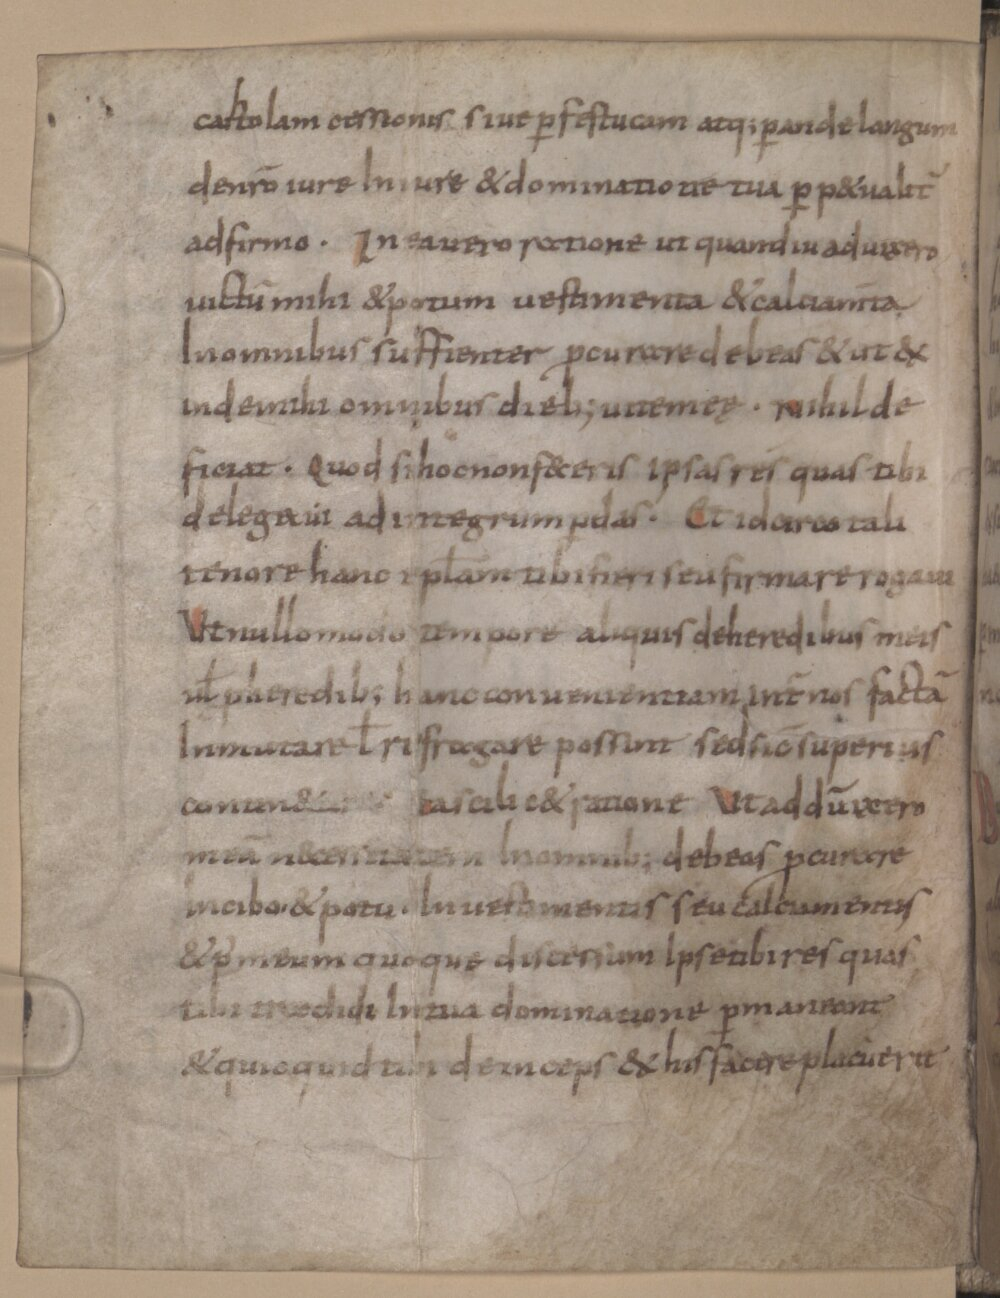 cartolam cessionis siue p̱ festucam atq; p̱ andelangum
denr̄o iure In iure & dominatione tua p̱p&ualit̄
adfirmo . In ea uero ractione ut quandiu aduixero
uictū mihi & potum uestimenta & calciam̄ta
In omnibus suffienter p̱curare debeas & ut &
inde mihi omnibus dieb; uite meę . Nihil de
ficiat . Quod si hoc non f&ceris Ipsas res quas tibi
delegaui ad integrum p̱das . Et idcirco tali
tenore hanc ipl̄am tibi fieri seu firmare rogaui
Ut nullo modo tempore aliquis de heredibus meis
ul̄ pheredib; hanc conuenientiam Int̄ nos factā
Inmutare l̄ rifragare possint sed sic̄ superius
ea scilic& ratione Ut ad dū uixero
meā n&cessitatem In omnib; debeas p̱curare
In cibo & potu . In uestimentis seu calciamentis
& p̱ meum quoque discessum Ipse tibi res quas
tibi tradidi In tua dominatione p̱maneant
& quicquid tibi deinceps & his facere placuerit